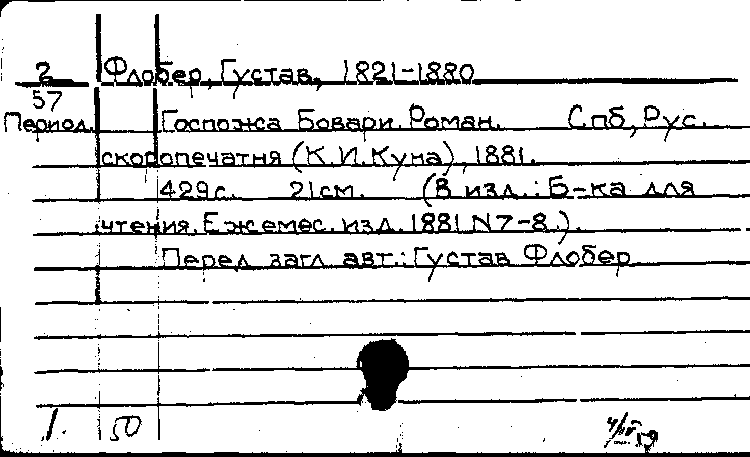 2 Флобер, Густав, 1821-1880
57
Период. Госпожа Бовари. Роман. Спб, Рус.
скоропечатня (К.И.Куна), 1881.
429с. 21см. (В изд.: Б-ка для
чтения. Ежемес. изд. 1881 N7-8.).
Перед загл авт.: Густав Флобер
1. 50